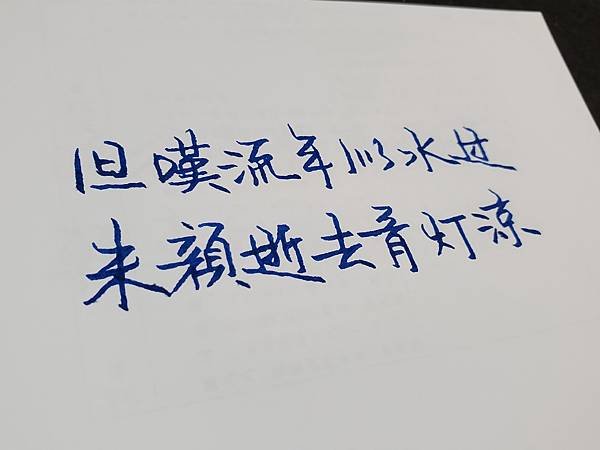 但嘆流年似水过
朱顏逝去青灯涼